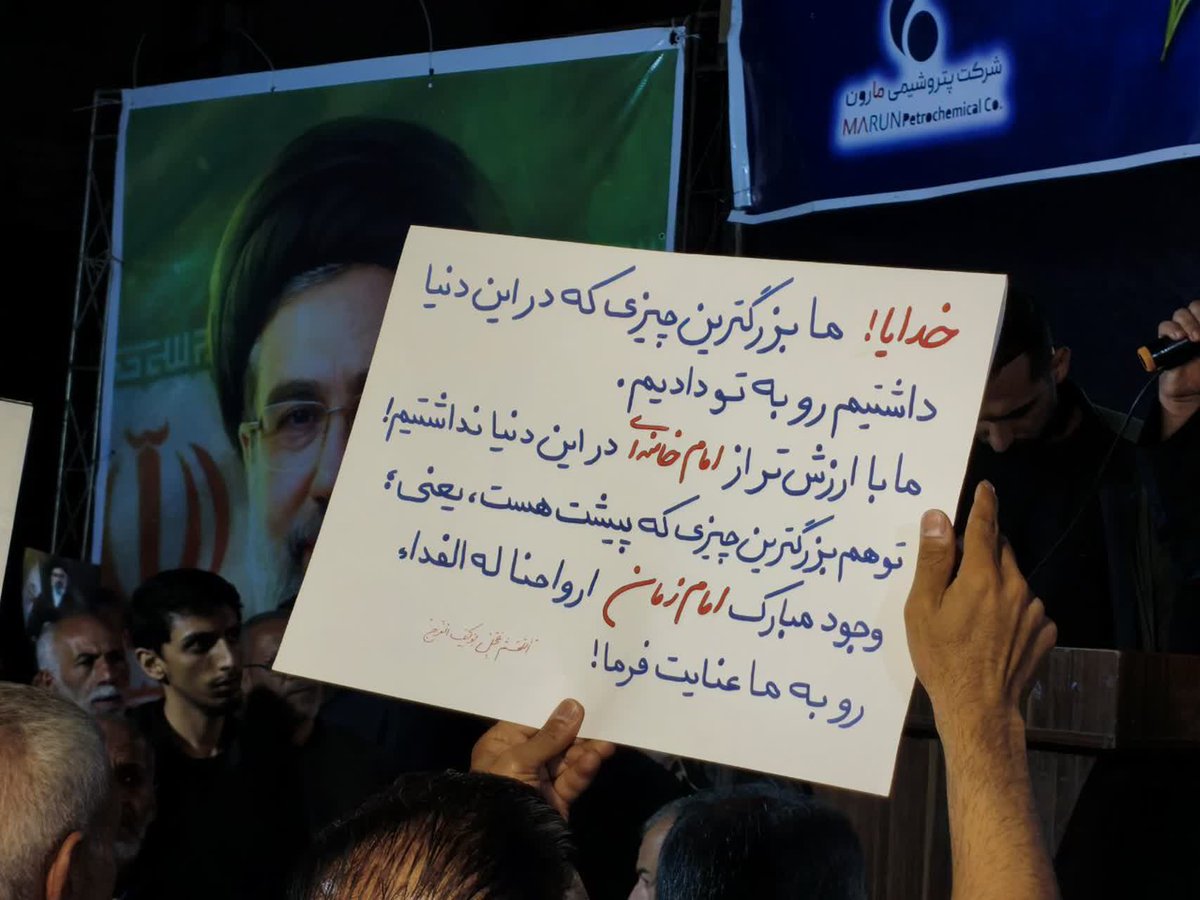 شرکت پتروشیمی مارون
MARUN Petrochemical Co.
خدایا! ما بزرگترین چیزی که در این دنیا
داشتیم رو به تو دادیم.
ما با ارزش تر از امام خامنه‌ای در این دنیا نداشتیم!
تو هم بزرگترین چیزی که پیشت هست، یعنی؛
وجود مبارک امام زمان ارواحنا له الفداء
رو به ما عنایت فرما!